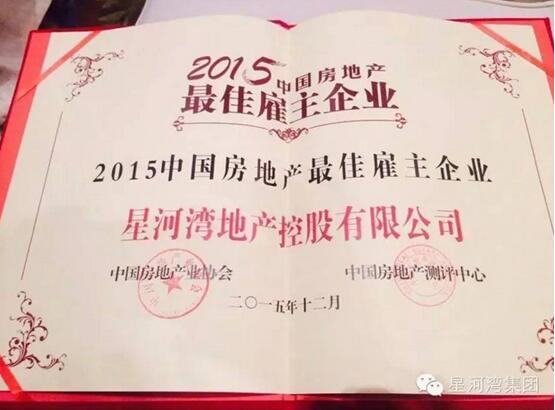 2015中国房地产
最佳雇主企业
2015中国房地产最佳雇主企业
星河湾地产控股有限公司
中国房地产业协会 中国房地产测评中心
二〇一五年十二月
星河湾集团